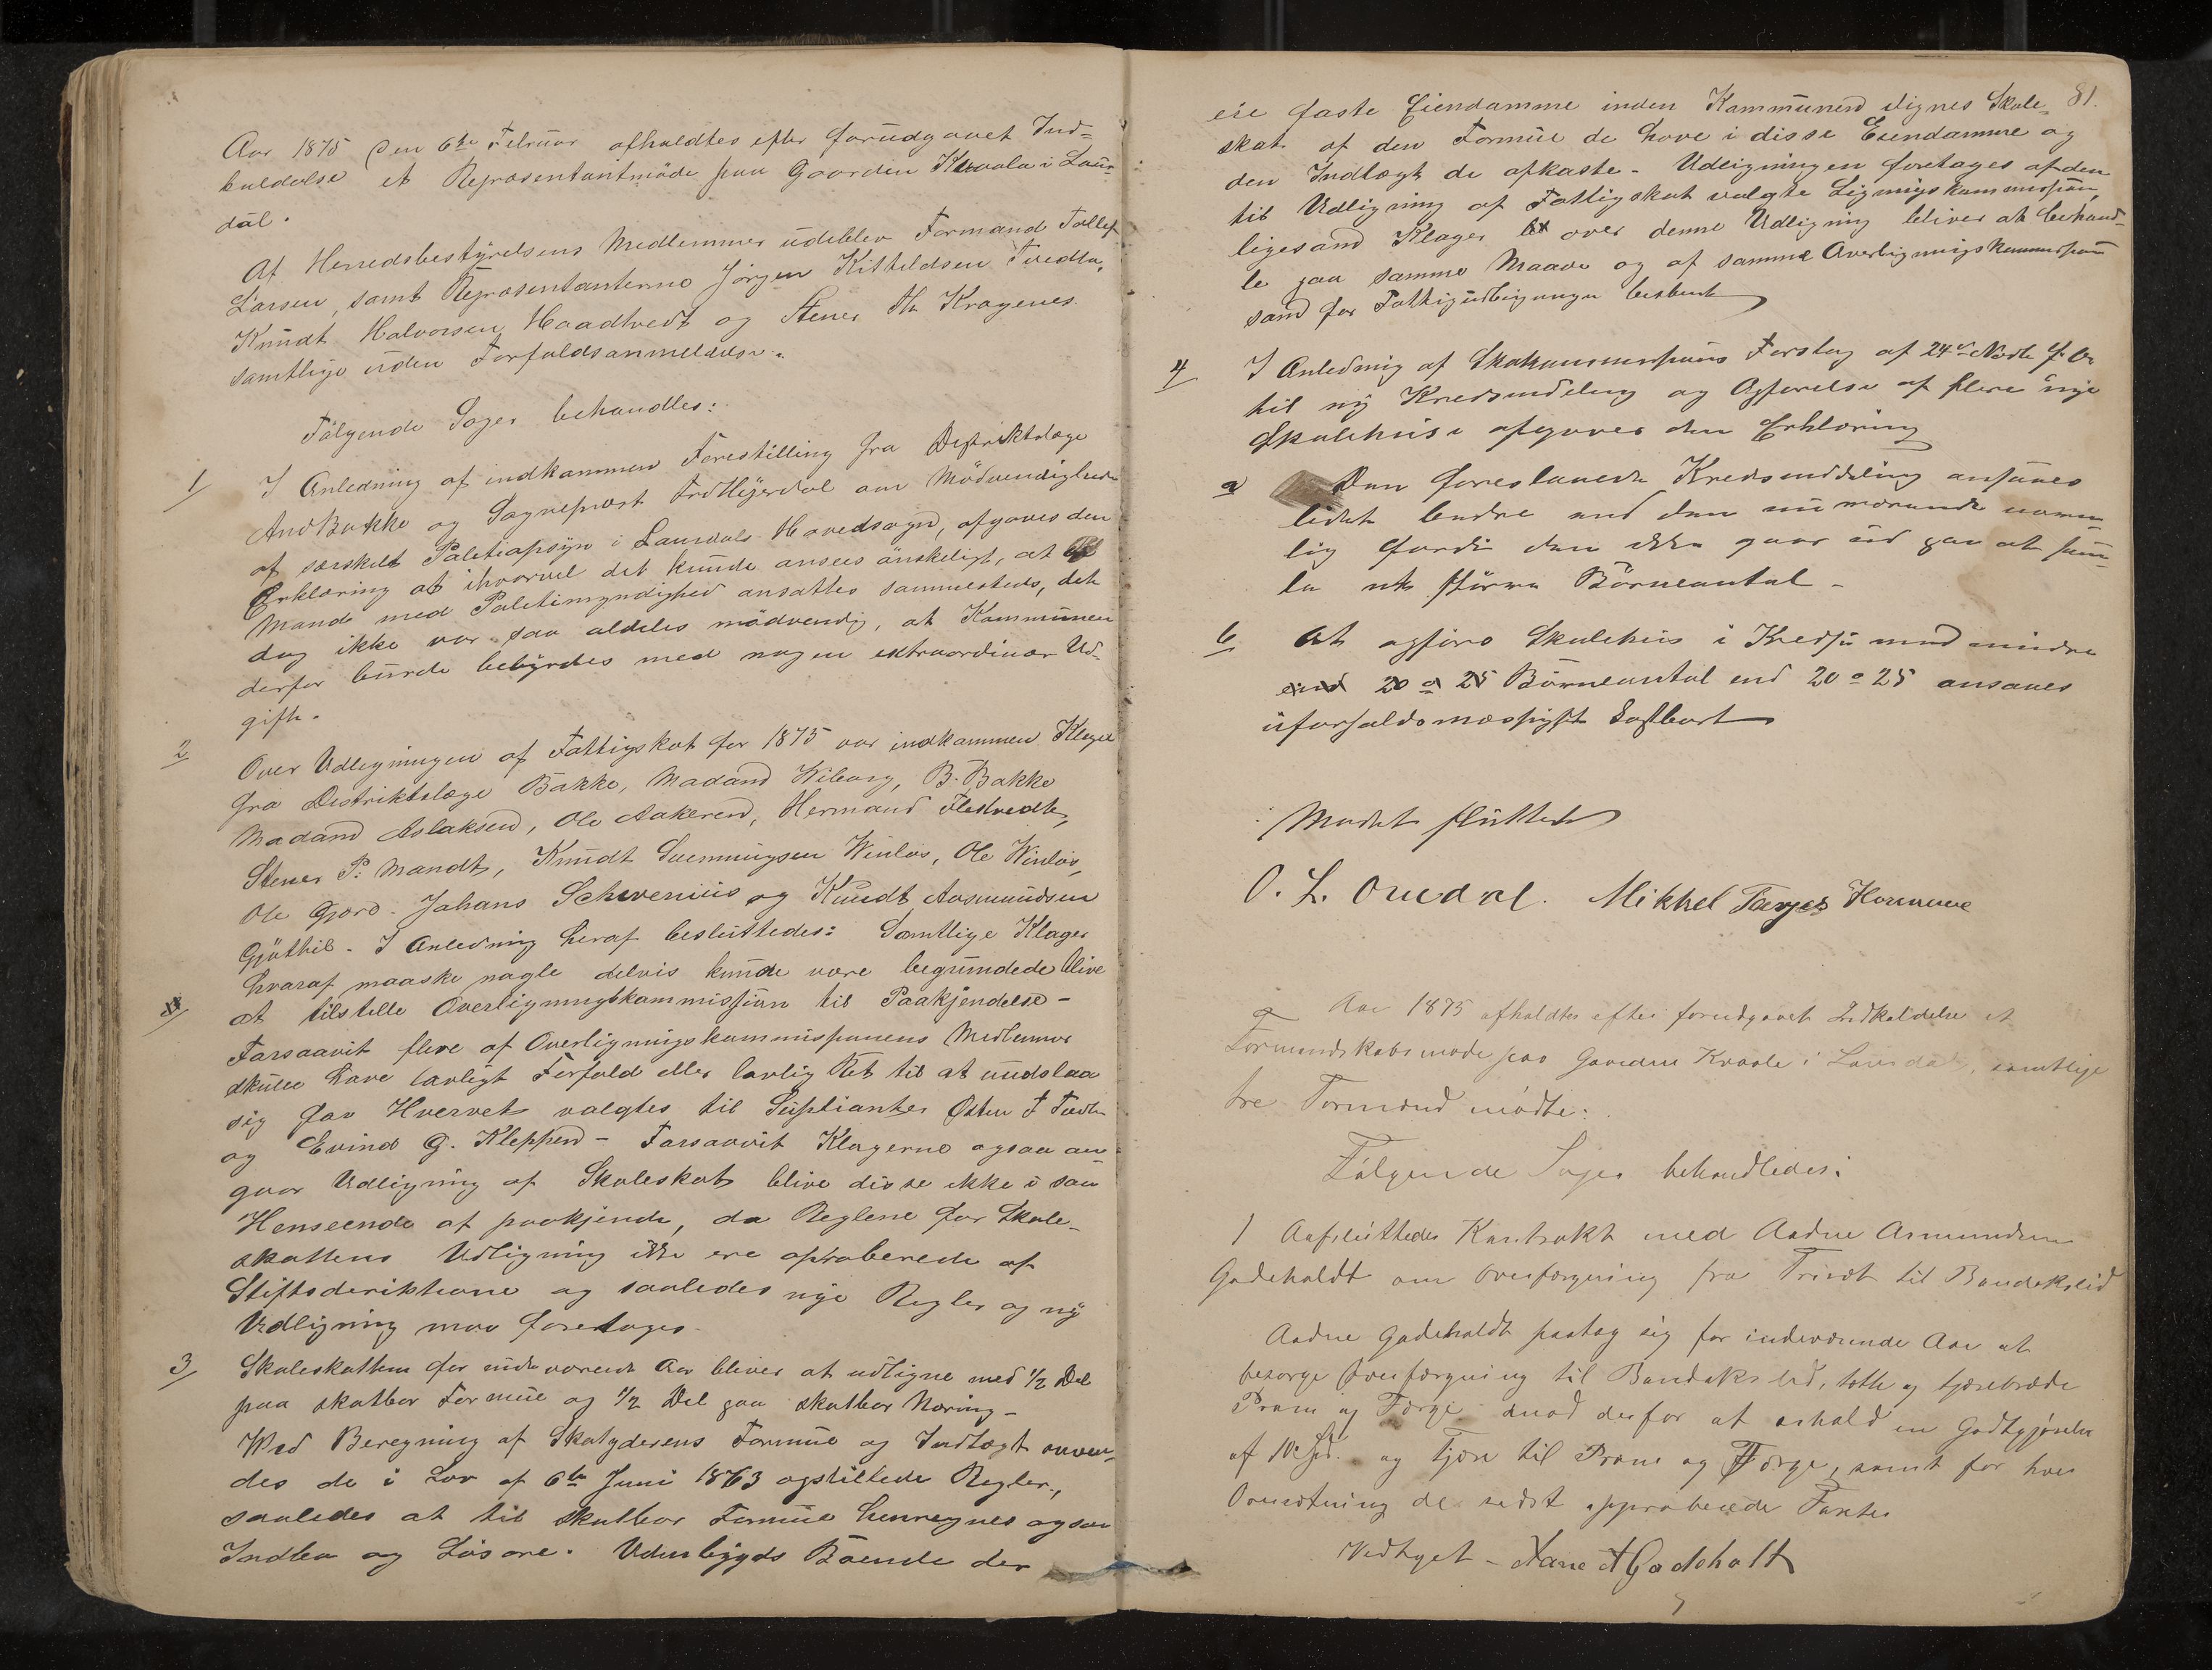 Aar 1875 den 6te Februar afholdtes efter forudgaaet Ind=
kaldelse et Repræsentantmøde paa Gaarden Kvaala i Laur=
dal.
Af Herredsbestyrelsens Medlemmer udeblev Formand Tollef
Larsen, samt Repræsentanterne Jørgen Kittildsen Tvedta,
Knudt Halvorsen Haadtvedt og Stener Th Kragenes
samtlige uden Forfaldsanmeldelse.
Følgende Sager behandles:
1/ I Anledning af indkommen Forestilling fra Distriktslæge
And Bakke og Sognepræst om Nødvendigheden
af særskilt Politiopsyn i Laurdals Hovedsogn, afgaves den
Erklæring at ihvorvel det kunde ansees ønskeligt, at
Mand med Politimyndighed ansattes sammesteds, det
dog ikke var saa aldeles nødvendig, at Kommunen
derfor burde bebyrdes med nogen extraordinær Ud-
gift.
2 Over Udligningen af Fattigskat for 1875 var indkommen Klager
fra Distriktslæge Bakke, Madam Wiborg, B. Bakke
Madam Aslaksen, Ole Aakeren, Hermand Flestvedt,
Stener P. Mandt, Knudt Svenningsen Vinløs, Ole Vinløs,
Ole Gjord. Johans Schwenius og Knudt Aasmundsen
Gjøthil. I Anledning heraf besluttedes: Samtlige Klager
hvoraf maaske nogle delvis kunde være begrundede blive
at tilstille Overligningskommissjon til Paakjendelse -
Forsaavit flere af Overligningskommisjonens Medlemmer
skulle have lovligt Forfald eller lovlig Ret til at undslaa
sig for Hvervet valgtes til Suplianter Østen T Tvedt
og Evind G. Kleppen - Forsaavit Klagerne ogsaa an-
gaar Udligning af Skoleskat blive disse ikke i saa
Henseende at paakjende, da Reglene for Skole-
skattens Udligning ikke ere aproberede af
Stiftsdirektione og saaledes nye Regler og ny
Udligning maa foretages.
3/ Skoleskatten for indeværende Aar bliver at udligne med 1/2 Del
paa skatbar Formue og 1/2 Del paa skatbar Næring -
Ved Beregning af Skatyderens Formue og Indtægt anven-
des de i Lov af 6te Juni 1863 opstillede Regler,
saaledes at til skatbar Formue henregnes ogsaa
Indbo og Løsøre. Udenbygds Boende der
81.
eie faste Eiendomme inden Kommunen lignes Skole=
skat af den Formue de have i disse Eiendomme og
den Indtægt de afkaste - Udligningen foretages af den
til Udligning af Fattigskat valgte Ligningskommission,
ligesom Klager over denne Udligning bliver at behand-
le paa samme Maade og af samme Overligningskommission
som for Fattigudligningen bestemt
4/ I Anledning af Skolekommissionens Forslag af 24de Novbr f. Aar
til ny Kredsinddeling og Opførelse af flere nye
Skolehuse afgaves den Erklæring
a Den foreslaaede Kredsinddeling ansaaes
lidet bedre end den nuværende navn-
lig fordi den ikke gaar ud paa at sam-
le et større Børneantal -
b At opføre Skolehus i Kredse med mindre
end 20 a 25 Børneantal end 20 a 25 ansaaes
uforholdsmæssigt kostbart
Mødet sluttet
O. L. Omdal. Mikkel Tarjes Homme
Aar 1875 afholdtes efter forudgaaet Indkaldelse et
Formandskabsmøde paa Gaarden Kvaale i Laurdal, samtlige
tre Formænd mødte.
Følgende Sager behandledes:
1 Aafsluttedes Kontrakt med Aadne Asmundsen
Godeholdt om Overfærgning fra Trisæt til Bandakslid
Aadne Godeholdt paatog sig for indeværende Aar at
besorge Overfærgning til Bandakslid, tætte og tjærebræde
Pram og Færge imod derfor at erhold en Godtgjørelse
af og Tjære til Pram og Færge, samt for hver
Oversætning de sidst approberede Taxter
Vedtaget - Aane A Godeholt